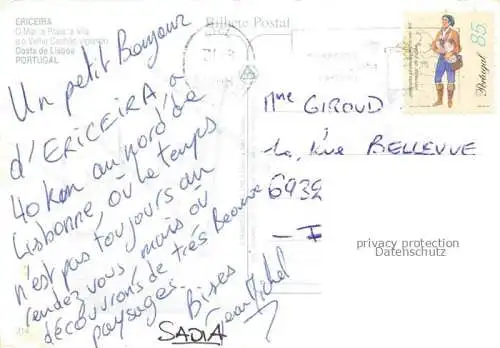 ERICEIRA
O Mar, a Praia, a Vila
e o Velho Canhão vigiando
Costa de Lisboa
PORTUGAL
Bilhete Postal
Portugal 85
Un petit Bonjour
d'ERICEIRA, a
40 km au nord de
Lisbonne, où le temps
n'est pas toujours au
rendez vous mais où
découvrons de très Beaux
paysages.
Bises
Jean Michel
SADIA
Mme GIROUD
La, Rue BELLEVUE
privacy protection
Datenschutz